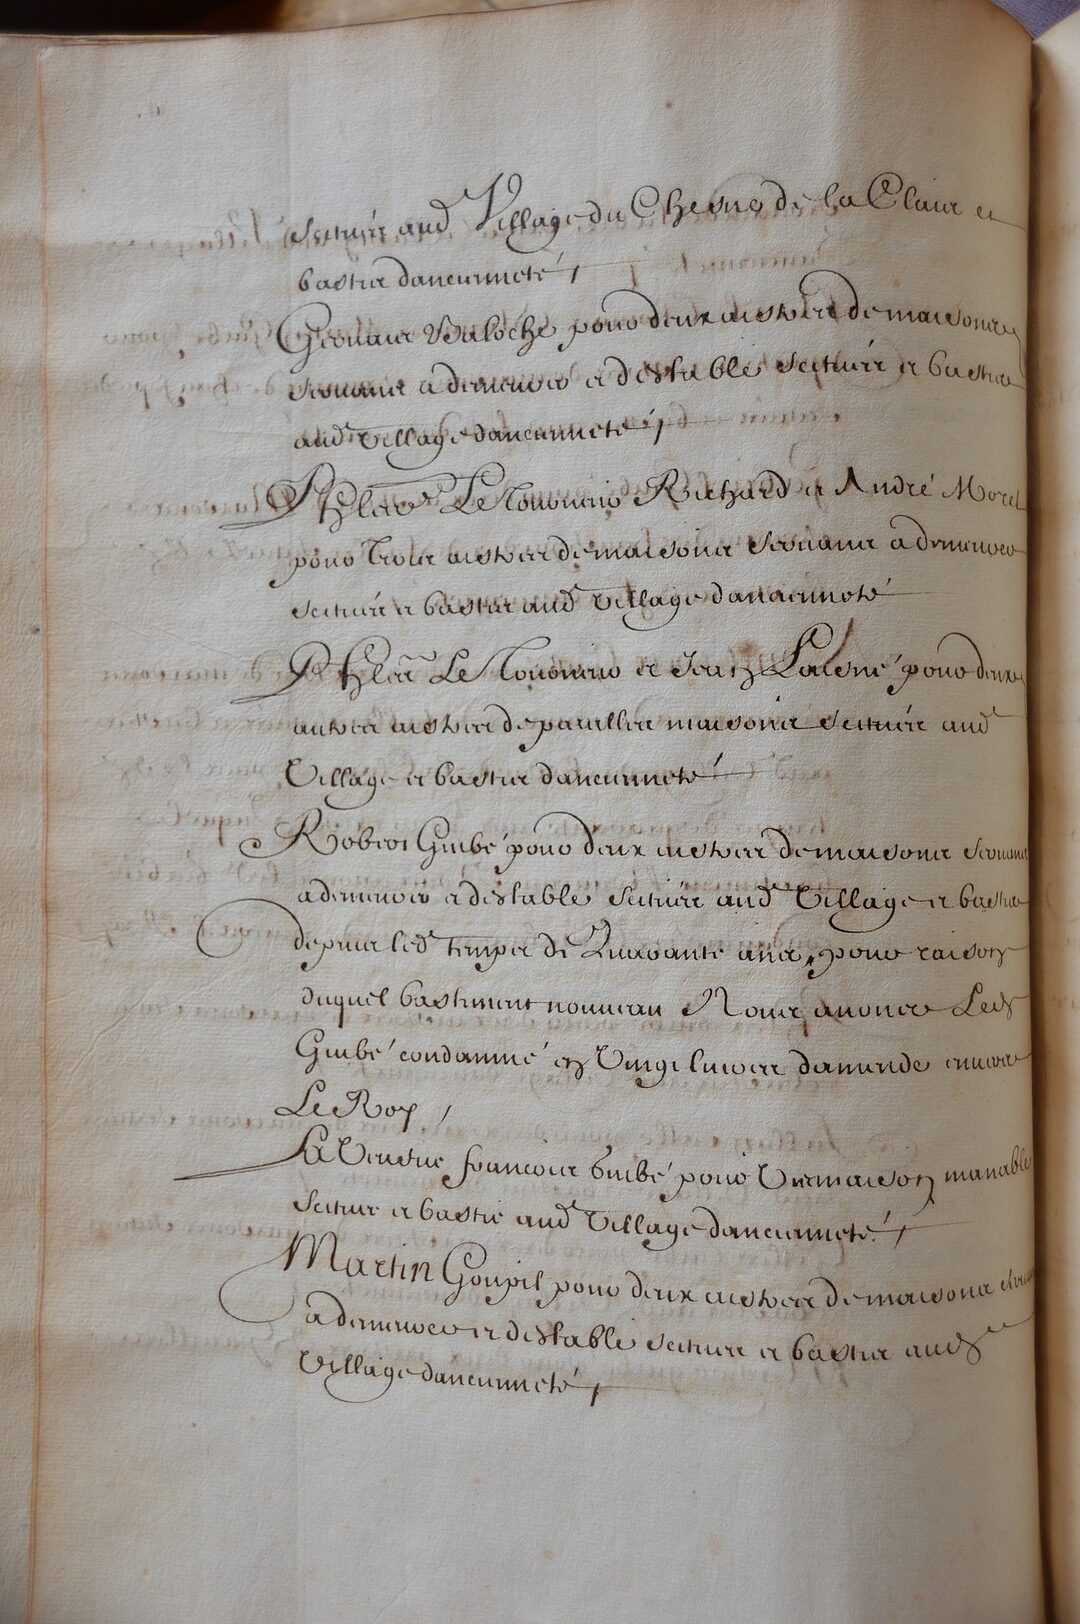 scituéz aud Village du Chesne de la Claie et
basties d'ancienneté /
Gervais Valoche pour deux aistres de maisons
servans a demeure et destable scituéz et bastis
aud Village dancienneté /
Phles Le Tourneur Richard et André Morel
pour trois aistres de maisons servans a demeure
scituéz et bastis aud Village dancienneté
Phles Le Tourneur et Jean Laisné pour deux
autres aistres de pareilles maisons scituéz aud
Village et bastis dancienneté
Robert Guibé pour deux aistres de maisons servans
a demeure et destable scituéz aud Village et bastis
depuis led temps de Quarante ans, pour raison
duquel bastiment nouveau Nous avons Led
Guibé condamné en Vingt livres damende envers
Le Roy /
La Veusve francois Guibé pour Une maison manable
scituee et bastie aud Village dancienneté /
Martin Goupil pour deux aistres de maisons
a demeure et destable scituez et bastis aud
Village dancienneté /